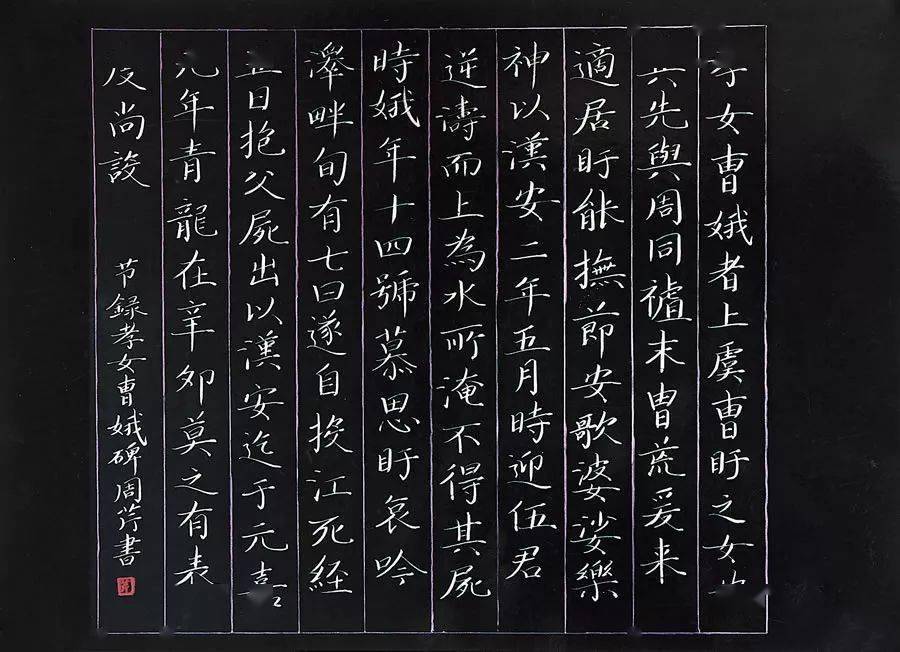 孝女曹娥者上虞曹盱之女
其先與周同末胄荒爰来
適居盱能撫節安歌婆娑樂
神以漢安二年五月時迎伍君
逆濤而上為水所淹不得其屍
時娥年十四號慕思盱哀吟
澤畔旬有七日遂自投江死経
五日抱父屍出以漢安迄于元嘉
元年青龍在辛卯莫之有表
度尚設
节録孝女曹娥碑周芹書